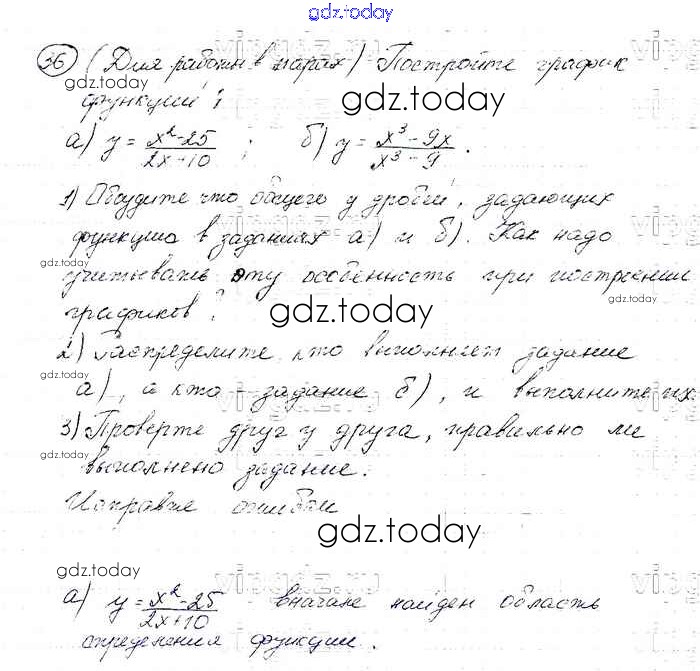 gdz.today
36 (Для работы в парах) Постройте график
gdz.today
функции:
gdz.today
а) y = x²-25 / 2x+10 ; б) y = x³-9x / x³-9 .
1) Обсудите что общего у дробей, задающих
функцию в заданиях а) и б). Как надо
gdz.today
учитывать эту особенность при построении
gdz.today
графиков?
gdz.today
2) Распределите, кто выполняет задание
gdz.today
а), а кто - задание б), и выполните их
3) Проверте друг у друга, правильно ли
gdz.today
выполнено задание.
Исправте ошибки
gdz.today
gdz.today
а) y = x²-25 / 2x+10 вначале найдем область
определения функции.